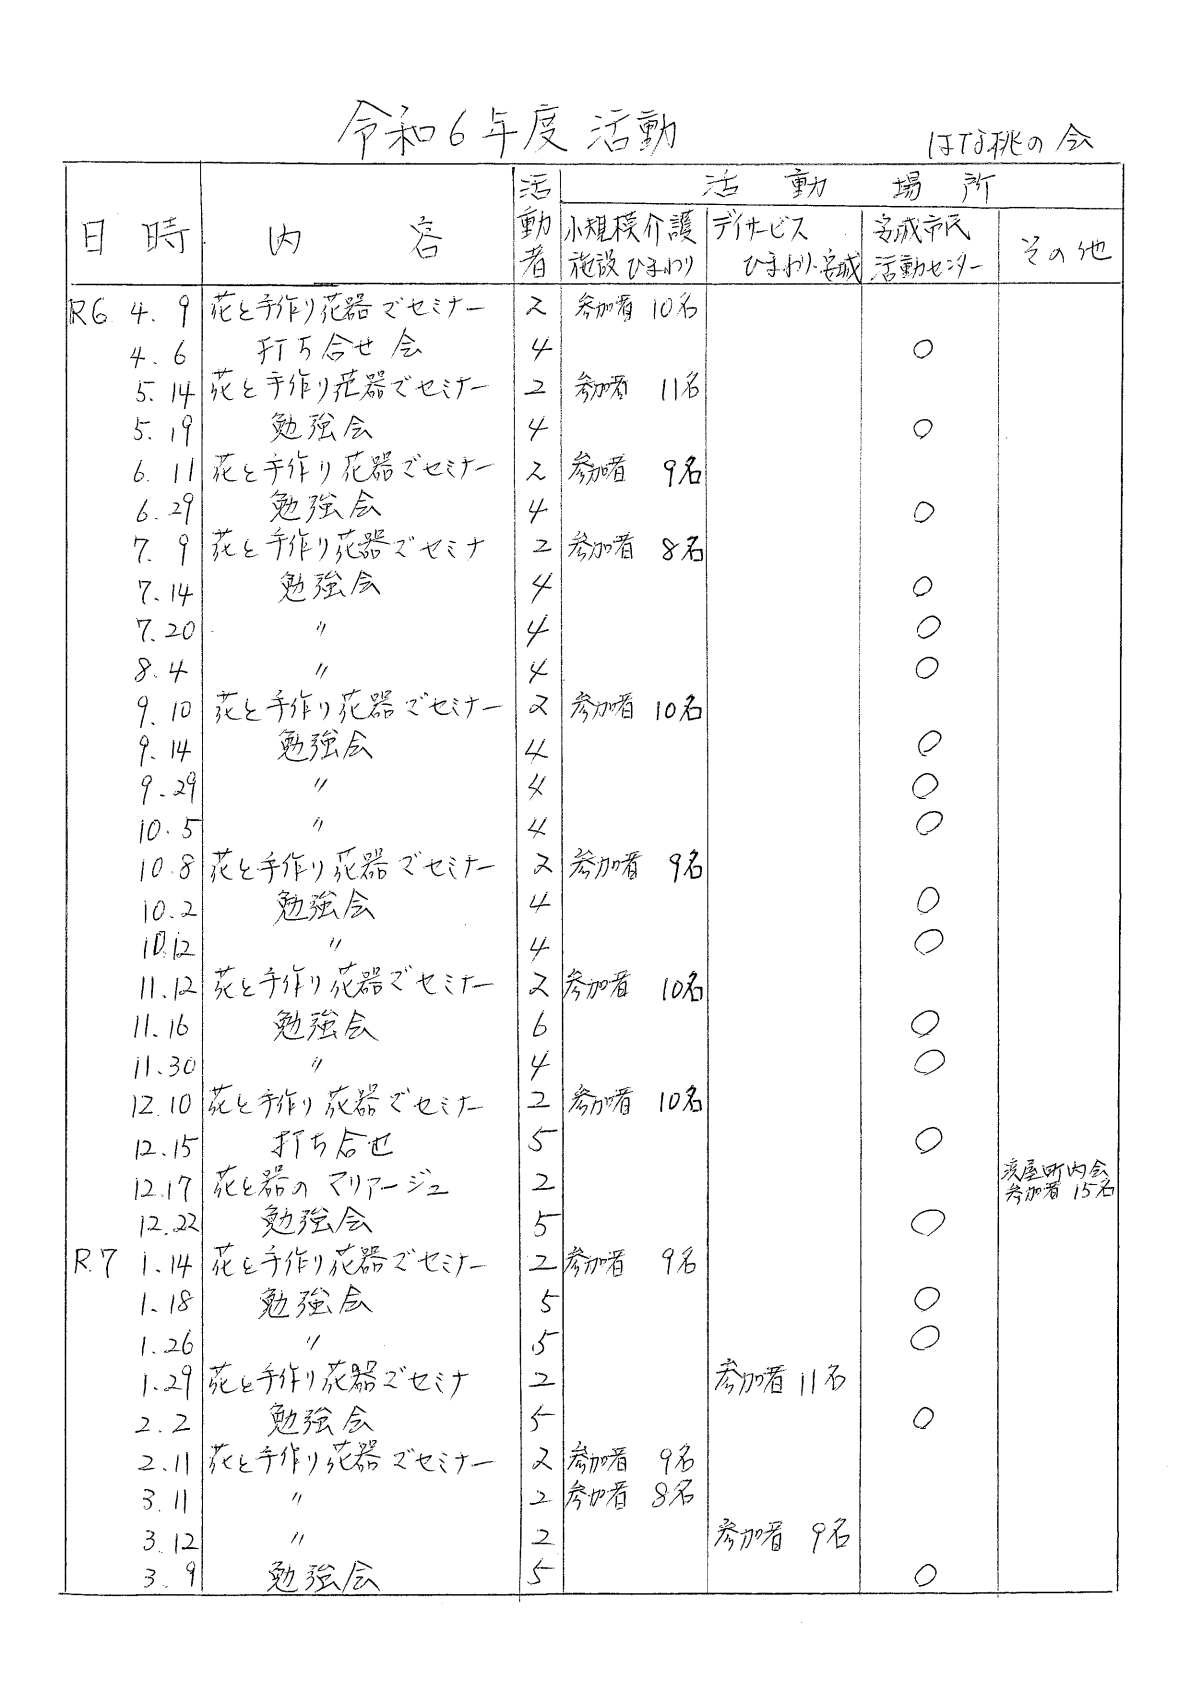 令和6年度 活動
はな桃の会
日 時 内 容 活動者 活動場所
小規模介護施設ひまわり デイサービスひまわり・宮城 宮城市民活動センター その他
R6 4. 9 花と手作り花器でセミナー 2 参加者 10名
4. 6 打ち合せ会 4 ○
5. 14 花と手作り花器でセミナー 2 参加者 11名
5. 19 勉強会 4 ○
6. 11 花と手作り花器でセミナー 2 参加者 9名
6. 29 勉強会 4 ○
7. 9 花と手作り花器でセミナ 2 参加者 8名
7. 14 勉強会 4 ○
7. 20 〃 4 ○
8. 4 〃 4 ○
9. 10 花と手作り花器でセミナー 2 参加者 10名
9. 14 勉強会 4 ○
9. 29 〃 4 ○
10. 5 〃 4 ○
10. 8 花と手作り花器でセミナー 2 参加者 9名
10. 2 勉強会 4 ○
10. 12 〃 4 ○
11. 12 花と手作り花器でセミナー 2 参加者 10名
11. 16 勉強会 6 ○
11. 30 〃 4 ○
12. 10 花と手作り花器でセミナー 2 参加者 10名
12. 15 打ち合せ 5 ○
12. 17 花と器のマリアージュ 2 町内会 参加者 15名
12. 22 勉強会 5 ○
R.7 1. 14 花と手作り花器でセミナー 2 参加者 9名
1. 18 勉強会 5 ○
1. 26 〃 5 ○
1. 29 花と手作り花器でセミナ 2 参加者 11名
2. 2 勉強会 5 ○
2. 11 花と手作り花器でセミナー 2 参加者 9名
3. 11 〃 2 参加者 8名
3. 12 〃 2 参加者 9名
3. 9 勉強会 5 ○